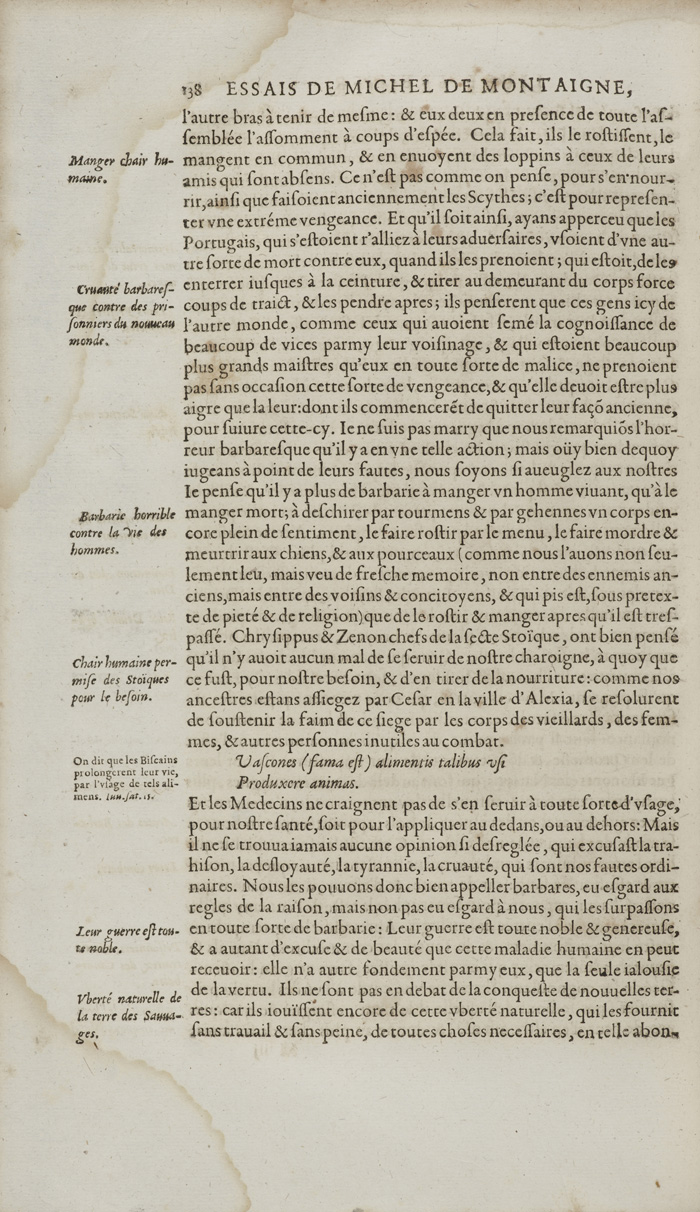 138 ESSAIS DE MICHEL DE MONTAIGNE,
l'autre bras à tenir de meſme: & eux deux en preſence de toute l'aſ-
ſemblée l'aſſomment à coups d'eſpée. Cela fait, ils le roſtiſſent, le
Manger chair hu-
maine.
mangent en commun, & en enuoyent des loppins à ceux de leurs
amis qui ſont abſens. Ce n'eſt pas comme on penſe, pour s'en nour-
rir, ainſi que faiſoient anciennement les Scythes; c'eſt pour repreſen-
ter vne extréme vengeance. Et qu'il ſoit ainſi, ayans apperceu que les
Portugais, qui s'eſtoient r'alliez à leurs aduerſaires, vſoient d'vne au-
tre ſorte de mort contre eux, quand ils les prenoient; qui eſtoit, de les
Cruauté barbareſ-
que contre des pri-
ſonniers du nouueau
monde.
enterrer iuſques à la ceinture, & tirer au demeurant du corps force
coups de traict, & les pendre apres; ils penſerent que ces gens icy de
l'autre monde, comme ceux qui auoient ſemé la cognoiſſance de
beaucoup de vices parmy leur voiſinage, & qui eſtoient beaucoup
plus grands maiſtres qu'eux en toute ſorte de malice, ne prenoient
pas ſans occaſion cette ſorte de vengeance, & qu'elle deuoit eſtre plus
aigre que la leur: dont ils commencerẽt de quitter leur façõ ancienne,
pour ſuiure cette-cy. Ie ne ſuis pas marry que nous remarquiõs l'hor-
reur barbareſque qu'il y a en vne telle action; mais oüy bien dequoy
iugeans à point de leurs fautes, nous ſoyons ſi aueuglez aux noſtres
Ie penſe qu'il y a plus de barbarie à manger vn homme viuant, qu'à le
Barbarie horrible
contre la vie des
hommes.
manger mort; à deſchirer par tourmens & par gehennes vn corps en-
core plein de ſentiment, le faire roſtir par le menu, le faire mordre &
meurtrir aux chiens, & aux pourceaux (comme nous l'auons non ſeu-
lement leu, mais veu de freſche memoire, non entre des ennemis an-
ciens, mais entre des voiſins & concitoyens, & qui pis eſt, ſous pretex-
te de pieté & de religion) que de le roſtir & manger apres qu'il eſt treſ-
paſſé. Chryſippus & Zenon chefs de la ſecte Stoïque, ont bien penſé
Chair humaine per-
miſe des Stoïques
pour le beſoin.
qu'il n'y auoit aucun mal de ſe ſeruir de noſtre charoigne, à quoy que
ce fuſt, pour noſtre beſoin, & d'en tirer de la nourriture: comme nos
anceſtres eſtans aſſiegez par Ceſar en la ville d'Alexia, ſe reſolurent
de ſouſtenir la faim de ce ſiege par les corps des vieillards, des fem-
mes, & autres perſonnes inutiles au combat.
On dit que les Biſcains
prolongerent leur vie,
par l'vſage de tels ali-
mens. Iuu. ſat. 15.
Vaſcones (fama eſt) alimentis talibus vſi
Produxere animas.
Et les Medecins ne craignent pas de s'en ſeruir à toute ſorte d'vſage,
pour noſtre ſanté, ſoit pour l'appliquer au dedans, ou au dehors: Mais
il ne ſe trouua iamais aucune opinion ſi deſreglée, qui excuſaſt la tra-
hiſon, la deſloyauté, la tyrannie, la cruauté, qui ſont nos fautes ordi-
naires. Nous les pouuons donc bien appeller barbares, eu eſgard aux
regles de la raiſon, mais non pas eu eſgard à nous, qui les ſurpaſſons
Leur guerre eſt tou-
te noble.
en toute ſorte de barbarie: Leur guerre eſt toute noble & genereuſe,
& a autant d'excuſe & de beauté que cette maladie humaine en peut
receuoir: elle n'a autre fondement parmy eux, que la ſeule ialouſie
de la vertu. Ils ne ſont pas en debat de la conqueſte de nouuelles ter-
Vberté naturelle de
la terre des Sauua-
ges.
res: car ils iouïſſent encore de cette vberté naturelle, qui les fournit
ſans trauail & ſans peine, de toutes choſes neceſſaires, en telle abon-